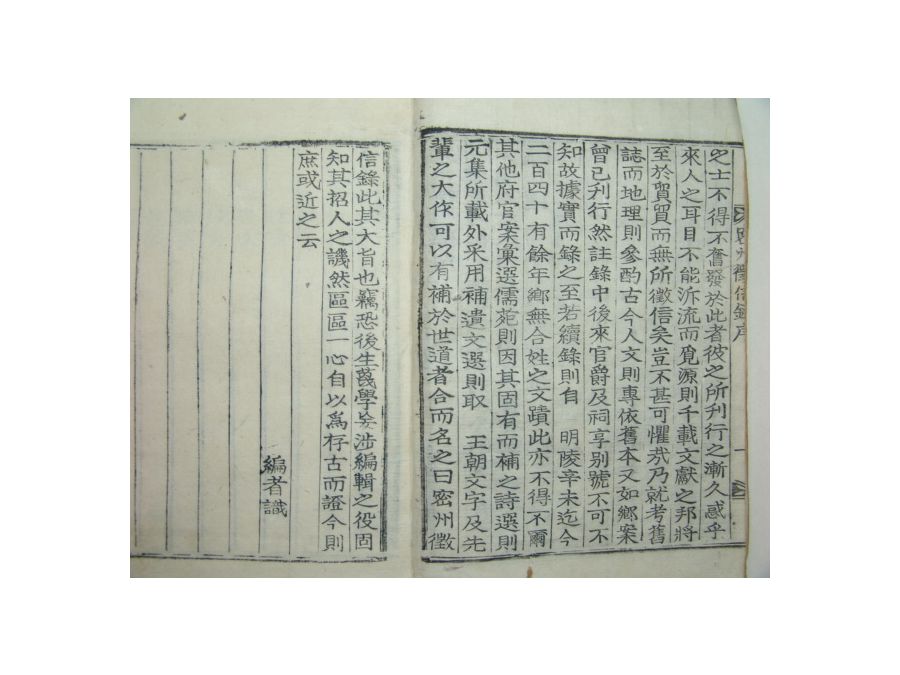 密州徵信錄序
之士不得不奮發於此者彼之所刊行之漸久惑乎
來人之耳目不能泝流而覓源則千載文獻之邦將
至於貿貿而無所徵信矣豈不甚可懼哉乃就考舊
誌而地理則參酌古今人文則專依舊本又如鄉案
曾已刋行然註錄中後來官爵及祠享別號不可不
知故據實而錄之至若續錄則自 明陵辛未迄今
二百四十有餘年鄉無合姓之文蹟此亦不得不爾
其他府官案彙選儒苑則因其固有而補之詩選則
元集所載外采用補遺文選則取 王朝文字及先
輩之大作可以有補於世道者合而名之曰密州徵
信錄此其大旨也竊恐後生蔑學妄涉編輯之役固
知其招人之譏然區區一心自以爲存古而證今則
庶或近之云
編者識